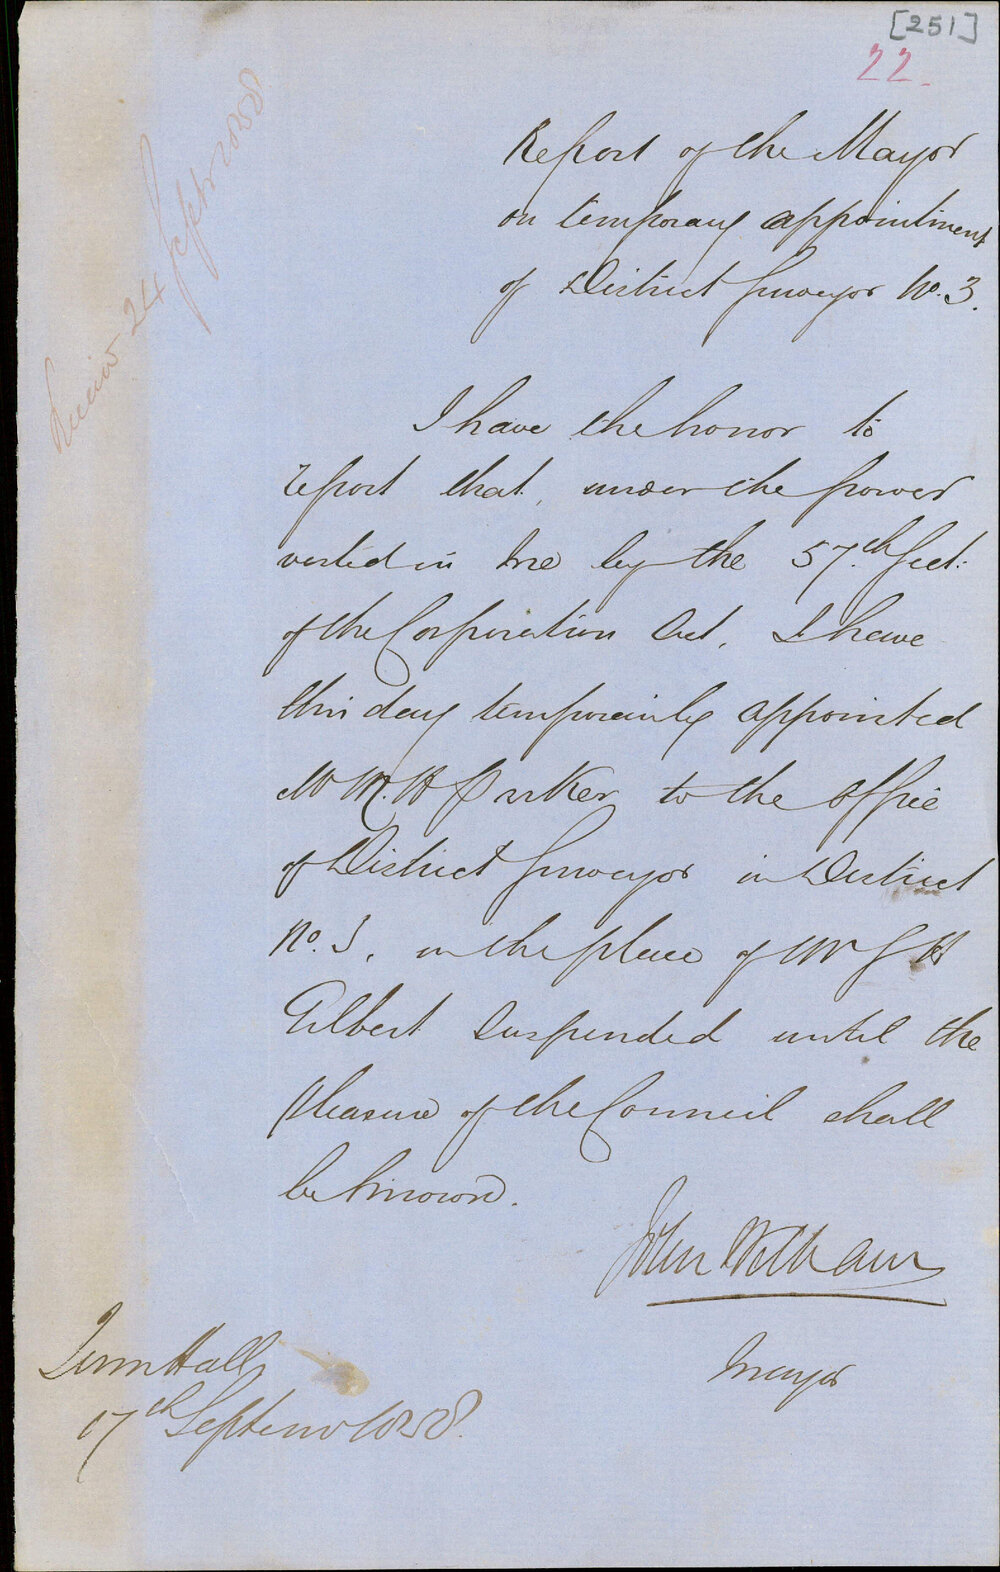 [251]
22.
Report of the Mayor
on temporary appointment
of District Surveyor No. 3.
I have the honor to
report that, under the power
vested in me by the 57.th Sect:
of the Corporation Act, I have
this day temporarily appointed
Mr M. H Parker to the office
of District Surveyor in District
No. 3, in the place of Mr J H
Gilbert suspended until the
pleasure of the Council shall
be known.
John Williams
Mayor
Town Hall
17th September 1858.
24 Septr 1858